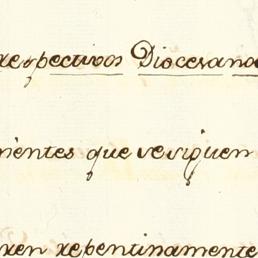 respectivos Diocesanos
nientes que se siguen
xen repentinamente